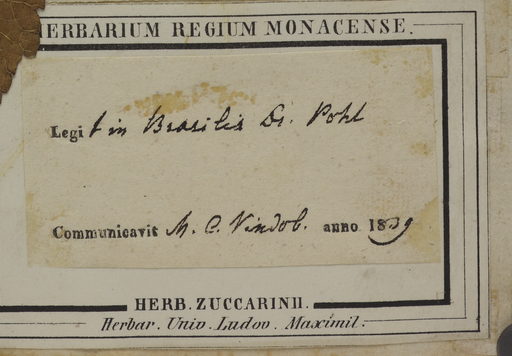 HERBARIUM REGIUM MONACENSE.
Legit in Brasilia Dr. Pohl
Communicavit M. C. Vindob. anno 1839
HERB. ZUCCARINII.
Herbar. Univ. Ludov. Maximil.